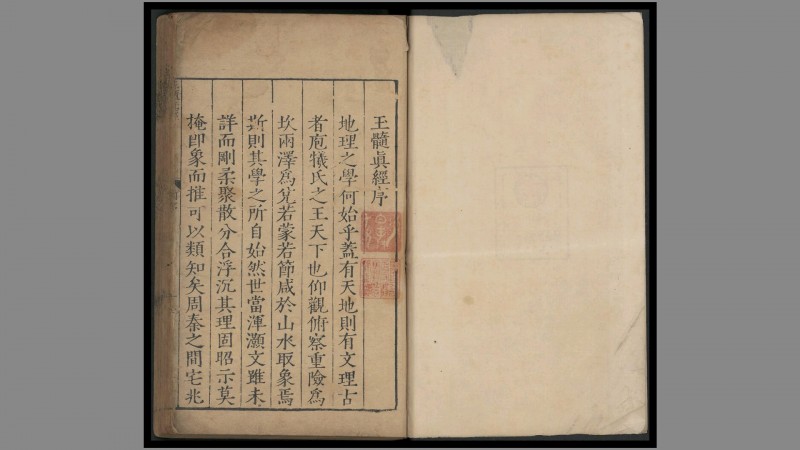 王髓真經序
地理之學何始乎蓋有天地則有文理古
者庖犧氏之王天下也仰觀俯察重險為
坎兩澤為兌若蒙若節咸於山水取象焉
斯則其學之所自始然世當渾灝文雖未
詳而剛柔聚散分合浮沉其理固昭示莫
掩即象而推可以類知矣周秦之間宅兆